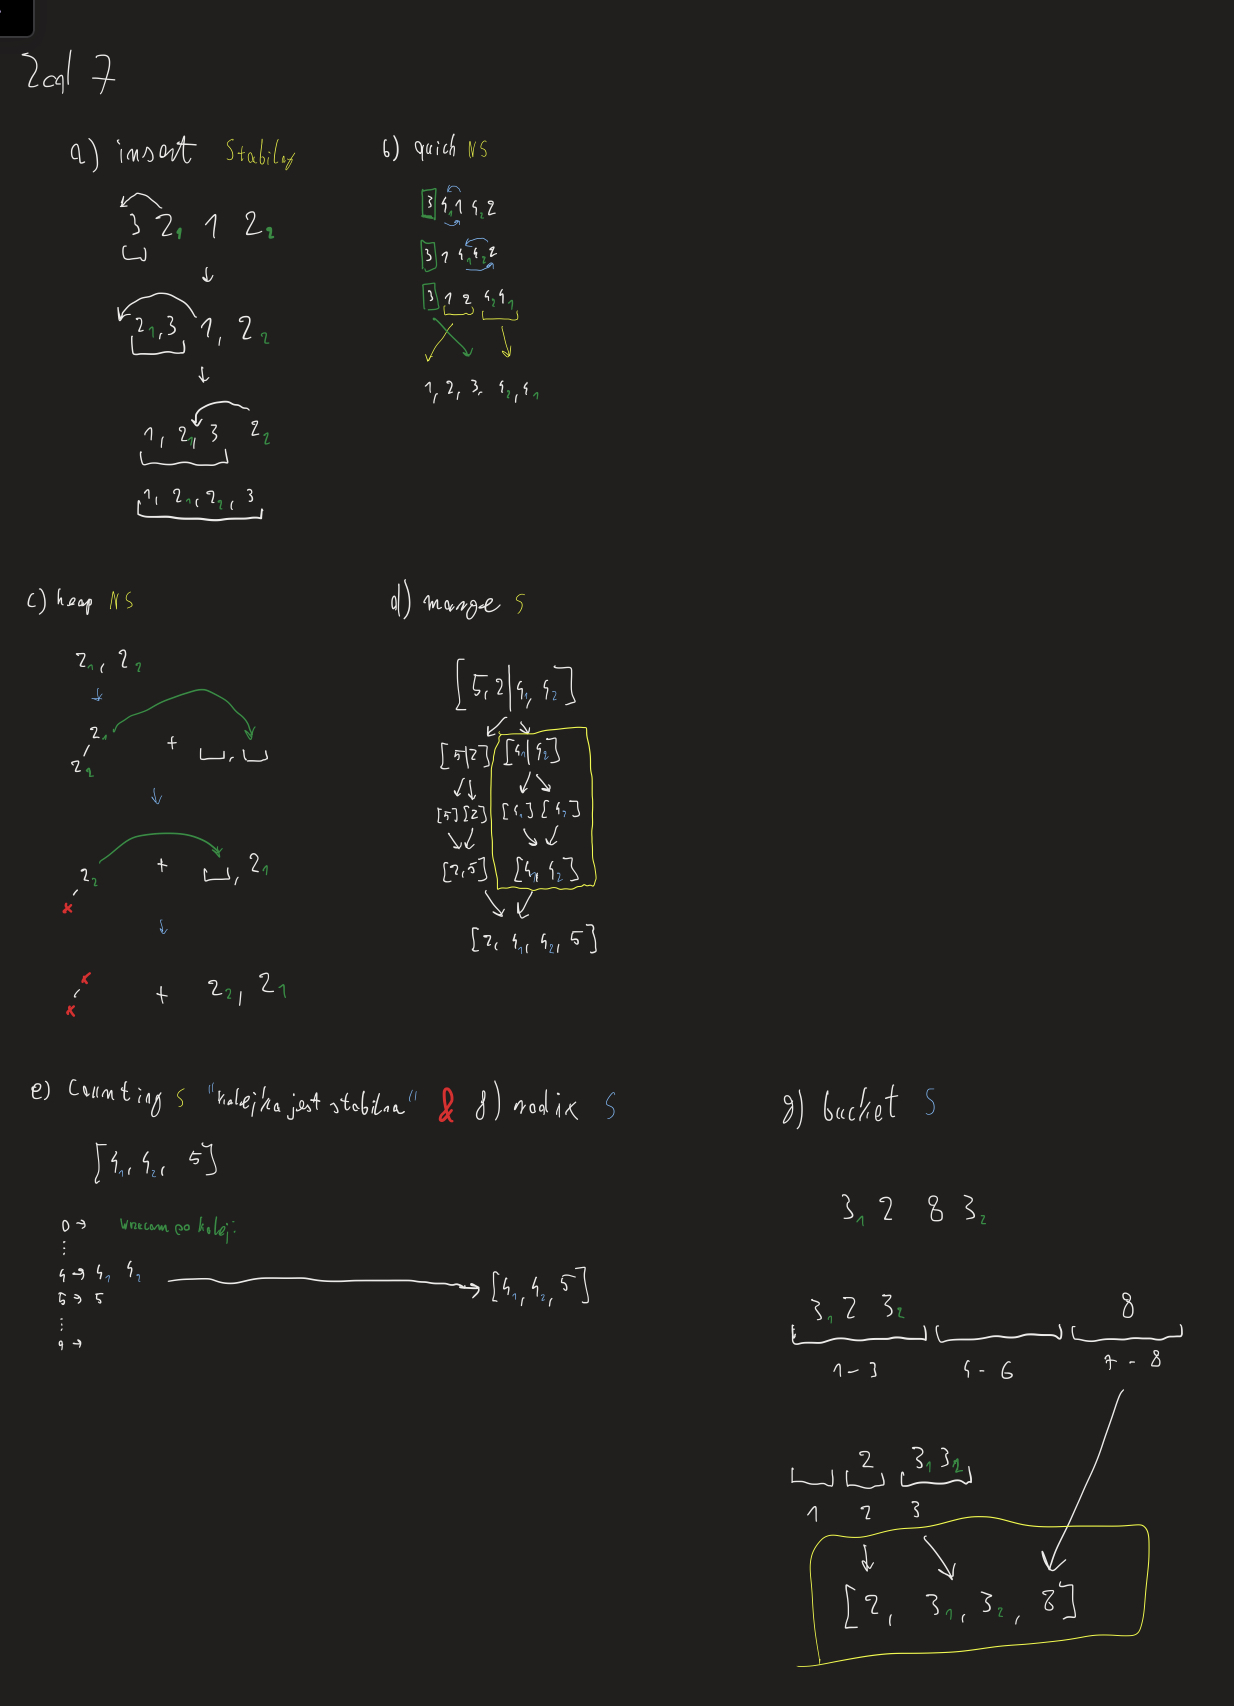 Zad 7
a) insert Stabilny
3 2₁ 1 2₂
2₁, 3 1, 2₂
1, 2₁, 3 2₂
1, 2₁, 2₂, 3
b) quick NS
3 4₁ 1 4₂ 2
3 1 4₁ 4₂ 2
3 1 2 4₂ 4₁
1, 2, 3, 4₂, 4₁
c) heap NS
2₁, 2₂
2₁
+ ,
2₂
2₂ + , 2₁
x
x
+ 2₂, 2₁
x
d) marge S
[5, 2 | 4₁, 4₂]
[5|2] [4₁|4₂]
[5] [2] [4₁] [4₂]
[2, 5] [4₁, 4₂]
[2, 4₁, 4₂, 5]
e) Counting S "kolejka jest stabilna" & f) radix S
[4₁, 4₂, 5]
0 → wrzucam po kolei:
⋮
4 → 4₁ 4₂ [4₁, 4₂, 5]
5 → 5
⋮
9 →
g) bucket S
3₁ 2 8 3₂
3₁ 2 3₂ 8
1 - 3 4 - 6 7 - 8
2 3₁ 3₂
1 2 3
[2, 3₁, 3₂, 8]